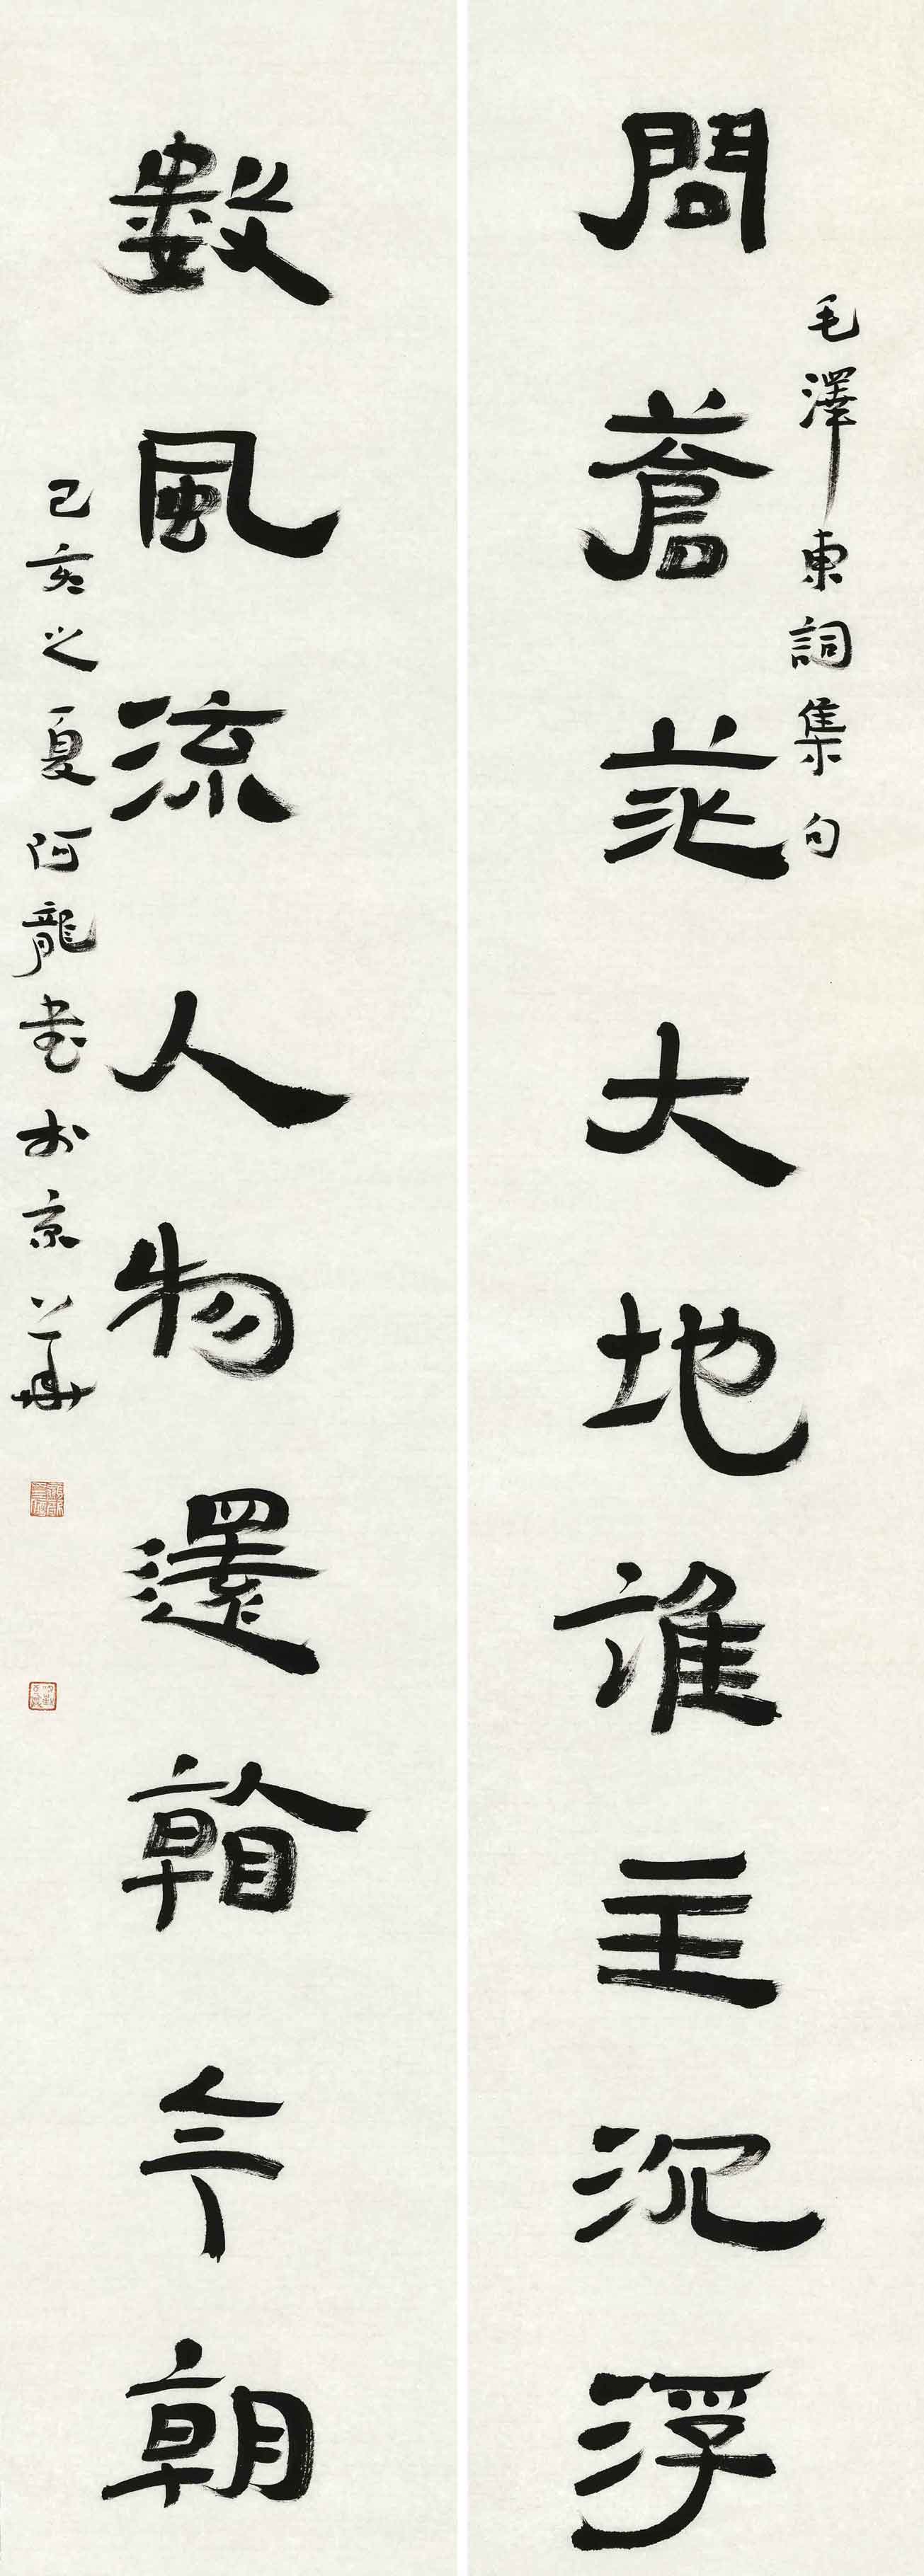 毛澤東詞集句
問蒼茫大地誰主沉浮
數風流人物還看今朝
己亥之夏阿龍書於京華